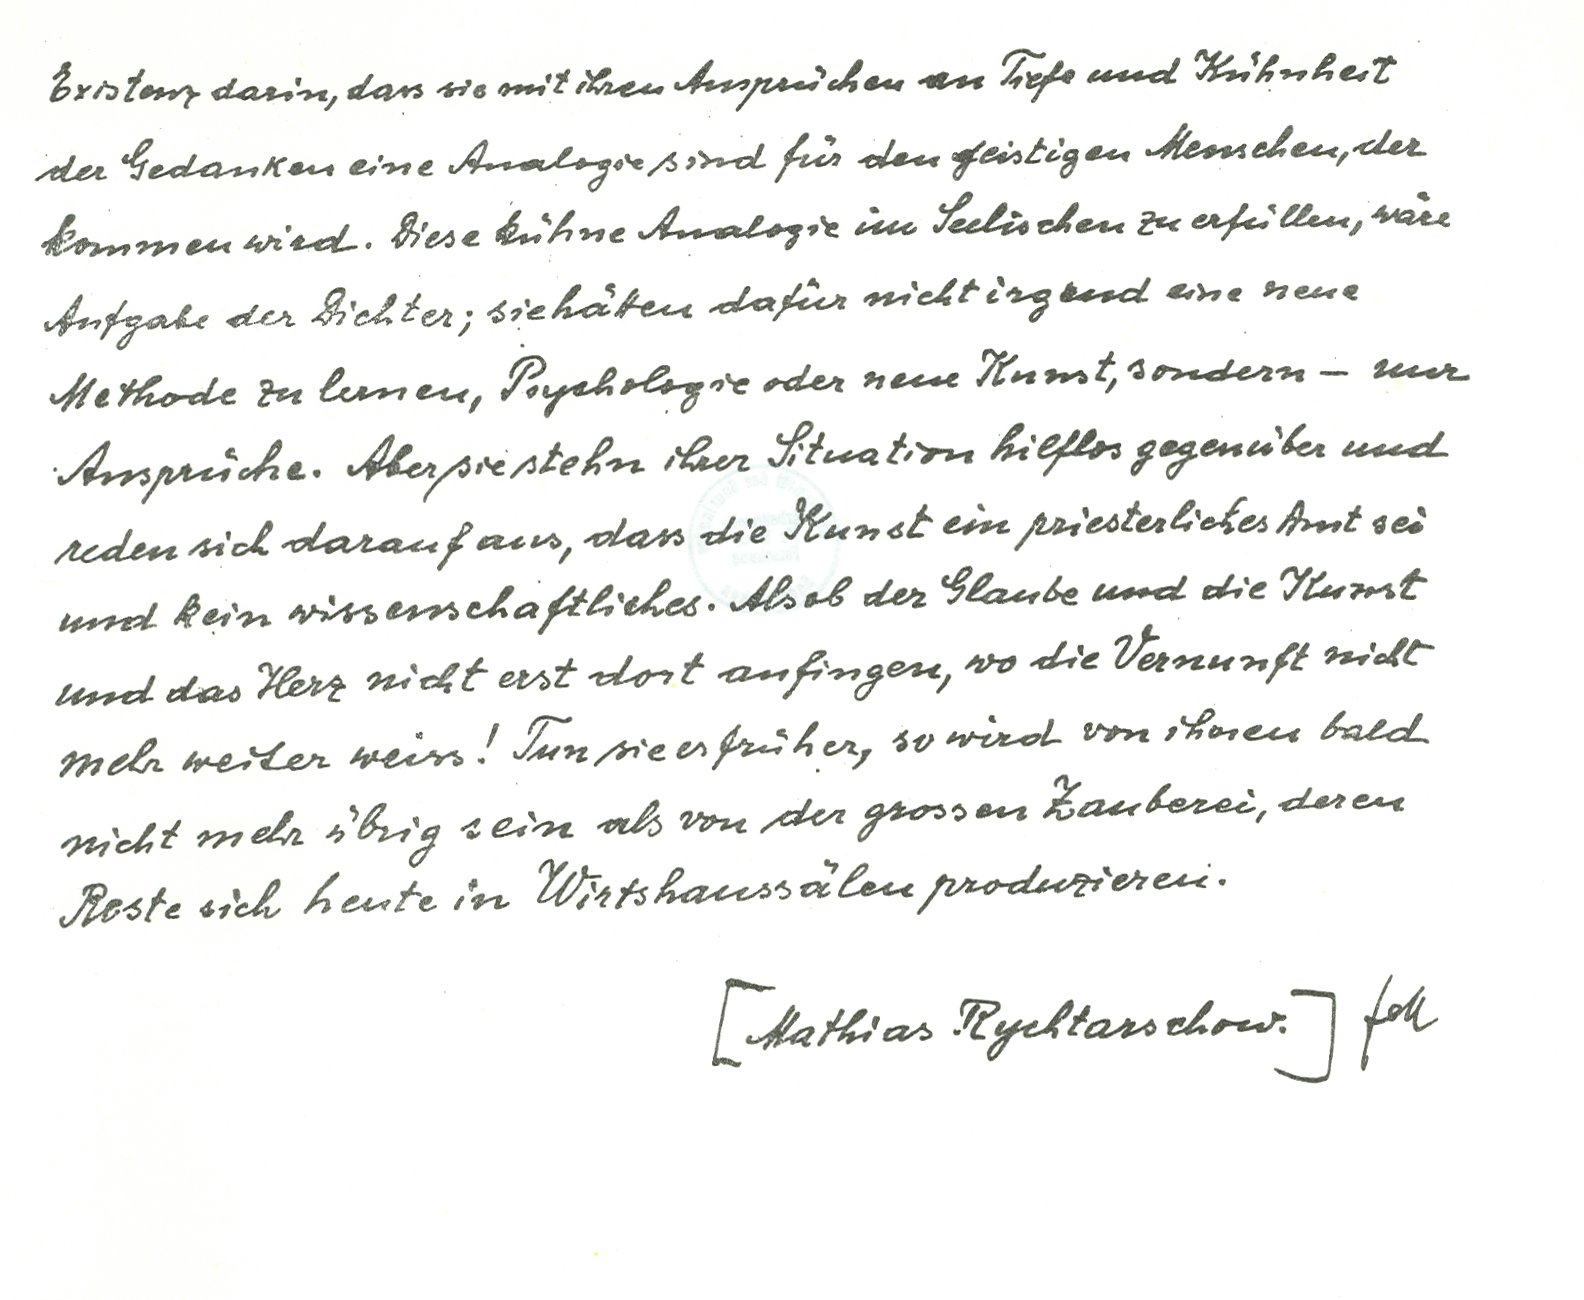 Existenz darin, dass sie mit ihren Ansprüchen an Tiefe und Kühnheit
der Gedanken eine Analogie sind für den geistigen Menschen, der
kommen wird. Diese kühne Analogie im Seelischen zu erfüllen, wäre
Aufgabe der Dichter; sie hätten dafür nicht irgend eine neue
Methode zu lernen, Psychologie oder neue Kunst, sondern – nur
Ansprüche. Aber sie stehn ihrer Situation hilflos gegenüber und
reden sich darauf aus, dass die Kunst ein priesterliches Amt sei
und kein wissenschaftliches. Als ob der Glaube und die Kunst
und das Herz nicht erst dort anfingen, wo die Vernunft nicht
mehr weiter weiss! Tun sie es früher, so wird von ihnen bald
nicht mehr übrig sein als von der grossen Zauberei, deren
Reste sich heute in Wirtshaussälen produzieren.
[Mathias Rychtarschow.]